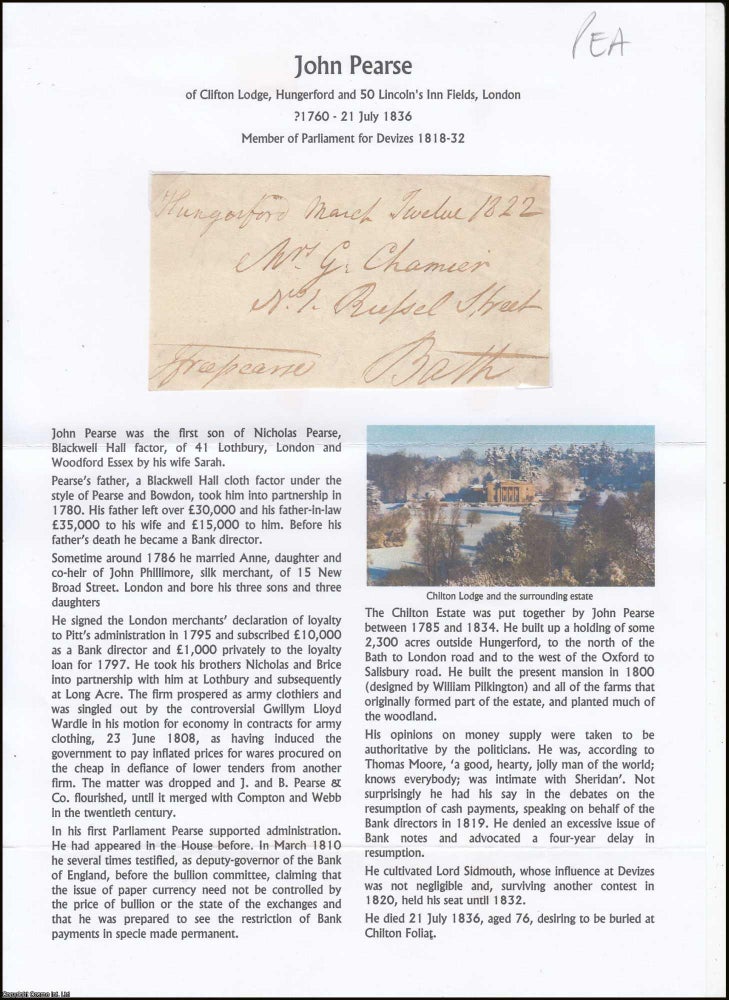 PEA
John Pearse
of Clifton Lodge, Hungerford and 50 Lincoln's Inn Fields, London
?1760 - 21 July 1836
Member of Parliament for Devizes 1818-32
Hungerford March Twelve 1822
Mrs G. Chamier
No. 1. Russel Street
Bath
freepearse
John Pearse was the first son of Nicholas Pearse,
Blackwell Hall factor, of 41 Lothbury, London and
Woodford Essex by his wife Sarah.
Pearse's father, a Blackwell Hall cloth factor under the
style of Pearse and Bowdon, took him into partnership in
1780. His father left over £30,000 and his father-in-law
£35,000 to his wife and £15,000 to him. Before his
father's death he became a Bank director.
Sometime around 1786 he married Anne, daughter and
co-heir of John Phillimore, silk merchant, of 15 New
Broad Street. London and bore his three sons and three
daughters
He signed the London merchants' declaration of loyalty
to Pitt's administration in 1795 and subscribed £10,000
as a Bank director and £1,000 privately to the loyalty
loan for 1797. He took his brothers Nicholas and Brice
into partnership with him at Lothbury and subsequently
at Long Acre. The firm prospered as army clothiers and
was singled out by the controversial Gwillym Lloyd
Wardle in his motion for economy in contracts for army
clothing, 23 June 1808, as having induced the
government to pay inflated prices for wares procured on
the cheap in defiance of lower tenders from another
firm. The matter was dropped and J. and B. Pearse &
Co. flourished, until it merged with Compton and Webb
in the twentieth century.
In his first Parliament Pearse supported administration.
He had appeared in the House before. In March 1810
he several times testified, as deputy-governor of the Bank
of England, before the bullion committee, claiming that
the issue of paper currency need not be controlled by
the price of bullion or the state of the exchanges and
that he was prepared to see the restriction of Bank
payments in specie made permanent.
Chilton Lodge and the surrounding estate
The Chilton Estate was put together by John Pearse
between 1785 and 1834. He built up a holding of some
2,300 acres outside Hungerford, to the north of the
Bath to London road and to the west of the Oxford to
Salisbury road. He built the present mansion in 1800
(designed by William Pilkington) and all of the farms that
originally formed part of the estate, and planted much of
the woodland.
His opinions on money supply were taken to be
authoritative by the politicians. He was, according to
Thomas Moore, 'a good, hearty, jolly man of the world;
knows everybody; was intimate with Sheridan'. Not
surprisingly he had his say in the debates on the
resumption of cash payments, speaking on behalf of the
Bank directors in 1819. He denied an excessive issue of
Bank notes and advocated a four-year delay in
resumption.
He cultivated Lord Sidmouth, whose influence at Devizes
was not negligible and, surviving another contest in
1820, held his seat until 1832.
He died 21 July 1836, aged 76, desiring to be buried at
Chilton Foliat.
Copyright Cosmo Int. Ltd